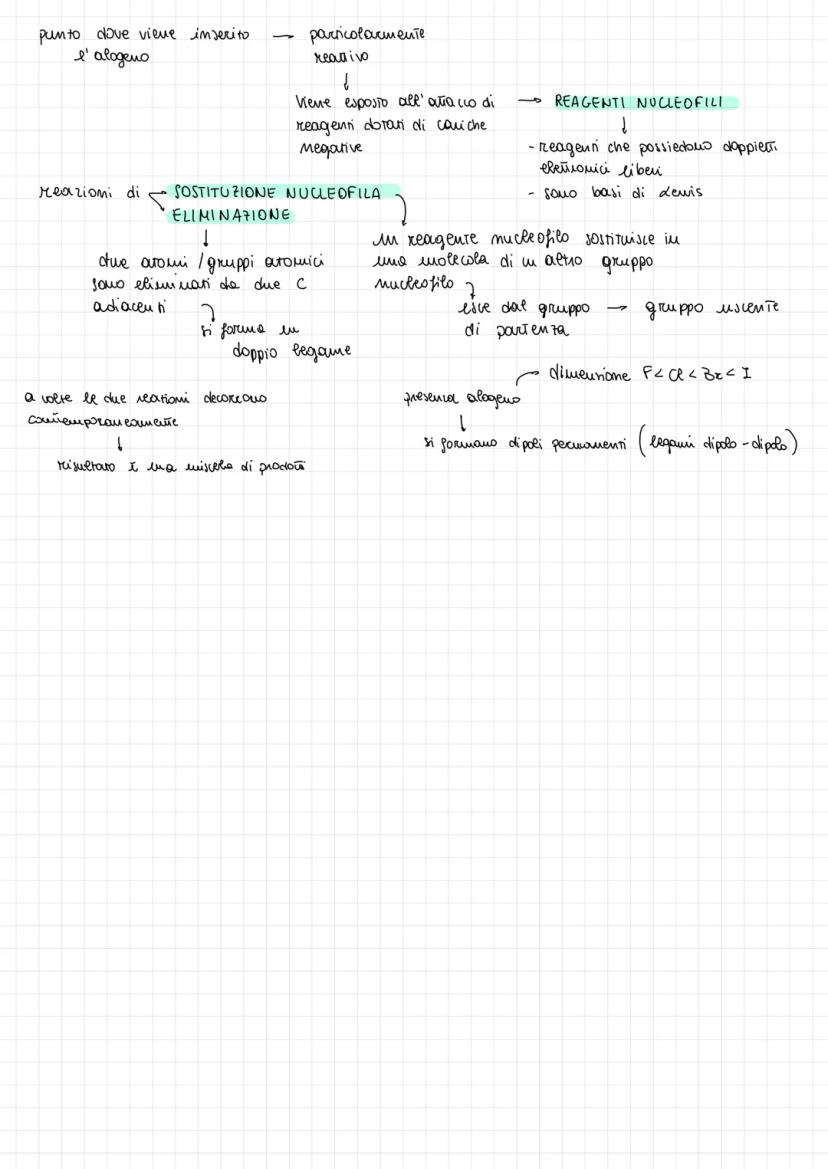 punto dove viene inserito → particolarmente
l'alogeno reattivo
↓
Viene esposto all'attacco di → REAGENTI NUCLEOFILI
reagenti dotati di cariche ↓
negative - reagenti che possiedono doppietti
elettronici liberi
- sono basi di Lewis
reazioni di SOSTITUZIONE NUCLEOFILA
ELIMINAZIONE
↓
due atomi / gruppi atomici
sono eliminati da due C
adiacenti
si forma un
doppio legame
un reagente nucleofilo sostituisce in
una molecola di un altro gruppo
nucleofilo
esce dal gruppo → gruppo uscente
di partenza
a volte le due reazioni decorrono
contemporaneamente
↓
risultato è una miscela di prodotti
presenza alogeno → dimensione F < Cl < Br < I
↓
si formano dipoli permanenti (legami dipolo-dipolo)